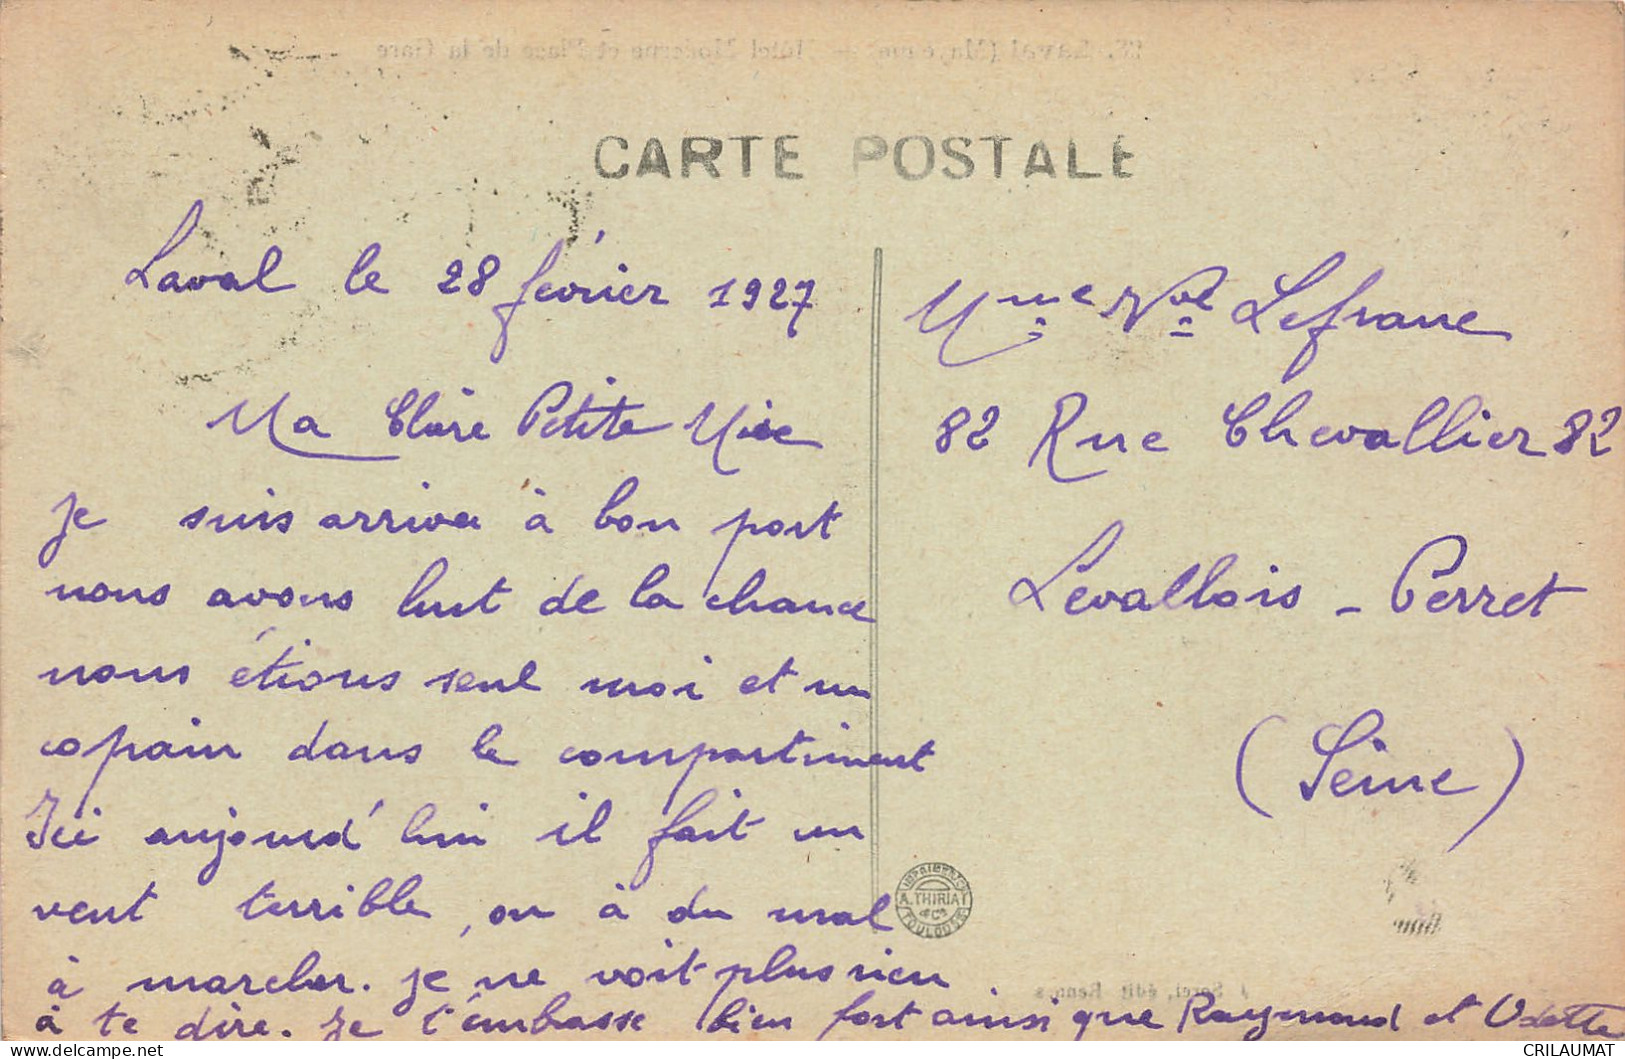 CARTE POSTALE
Laval le 28 février 1927
Ma Chère Petite Mère
je suis arriver à bon port
nous avons hut de la chance
nous étions seul moi et un
copain dans le compartiment
Ici aujourd'hui il fait un
vent terrible, on à du mal
à marcher. je ne voit plus rien
à te dire. Je t'embrasse bien fort ainsi que Raymond et Odette
Mme Vve Lefranc
82 Rue Chevallier 82
Levallois - Perret
(Seine)
IMPRIMERIE
A. THIRIAT
& Cie
TOULOUSE
J. Sorel, édit. Rennes
Laval (Mayenne) — Hôtel Moderne et Place de la Gare
CRILAUMAT